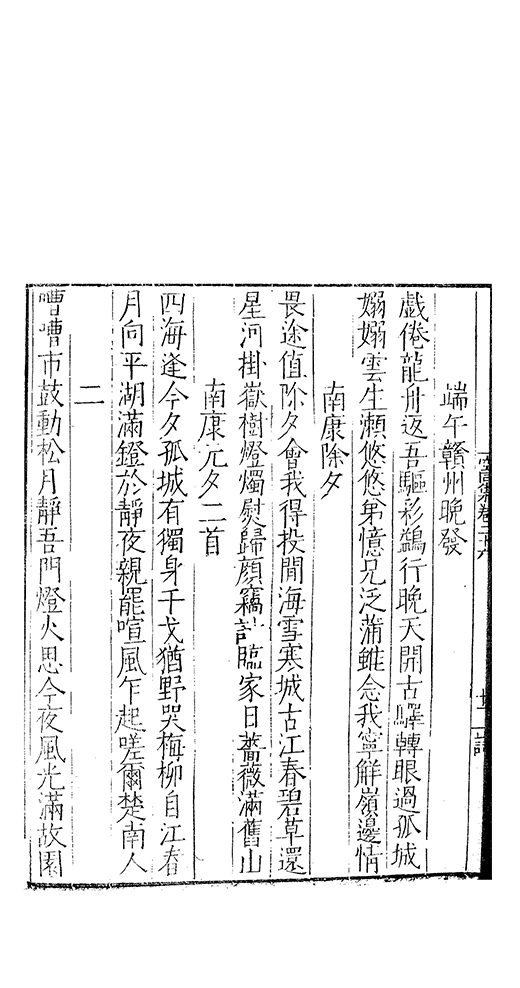 端午贛州晚發
戯倦龍舟返吾驅彩鷁行晚天開古驛轉眼過孤城
嫋嫋雲生瀬悠悠弟憶兄泛蒲雖念我寧解嶺邊情
南康除夕
畏途值除夕會我得投閒海雪寒城古江春碧草還
星河掛嶽樹燈燭慰歸顔竊計臨家日薔薇滿舊山
南康元夕二首
四海逢今夕孤城有獨身干戈猶野哭梅柳自江春
月向平湖滿鐙於靜夜親罷喧風乍起嗟爾楚南人
二
嘈嘈市鼓動松月靜吾門燈火思今夜風光滿故園